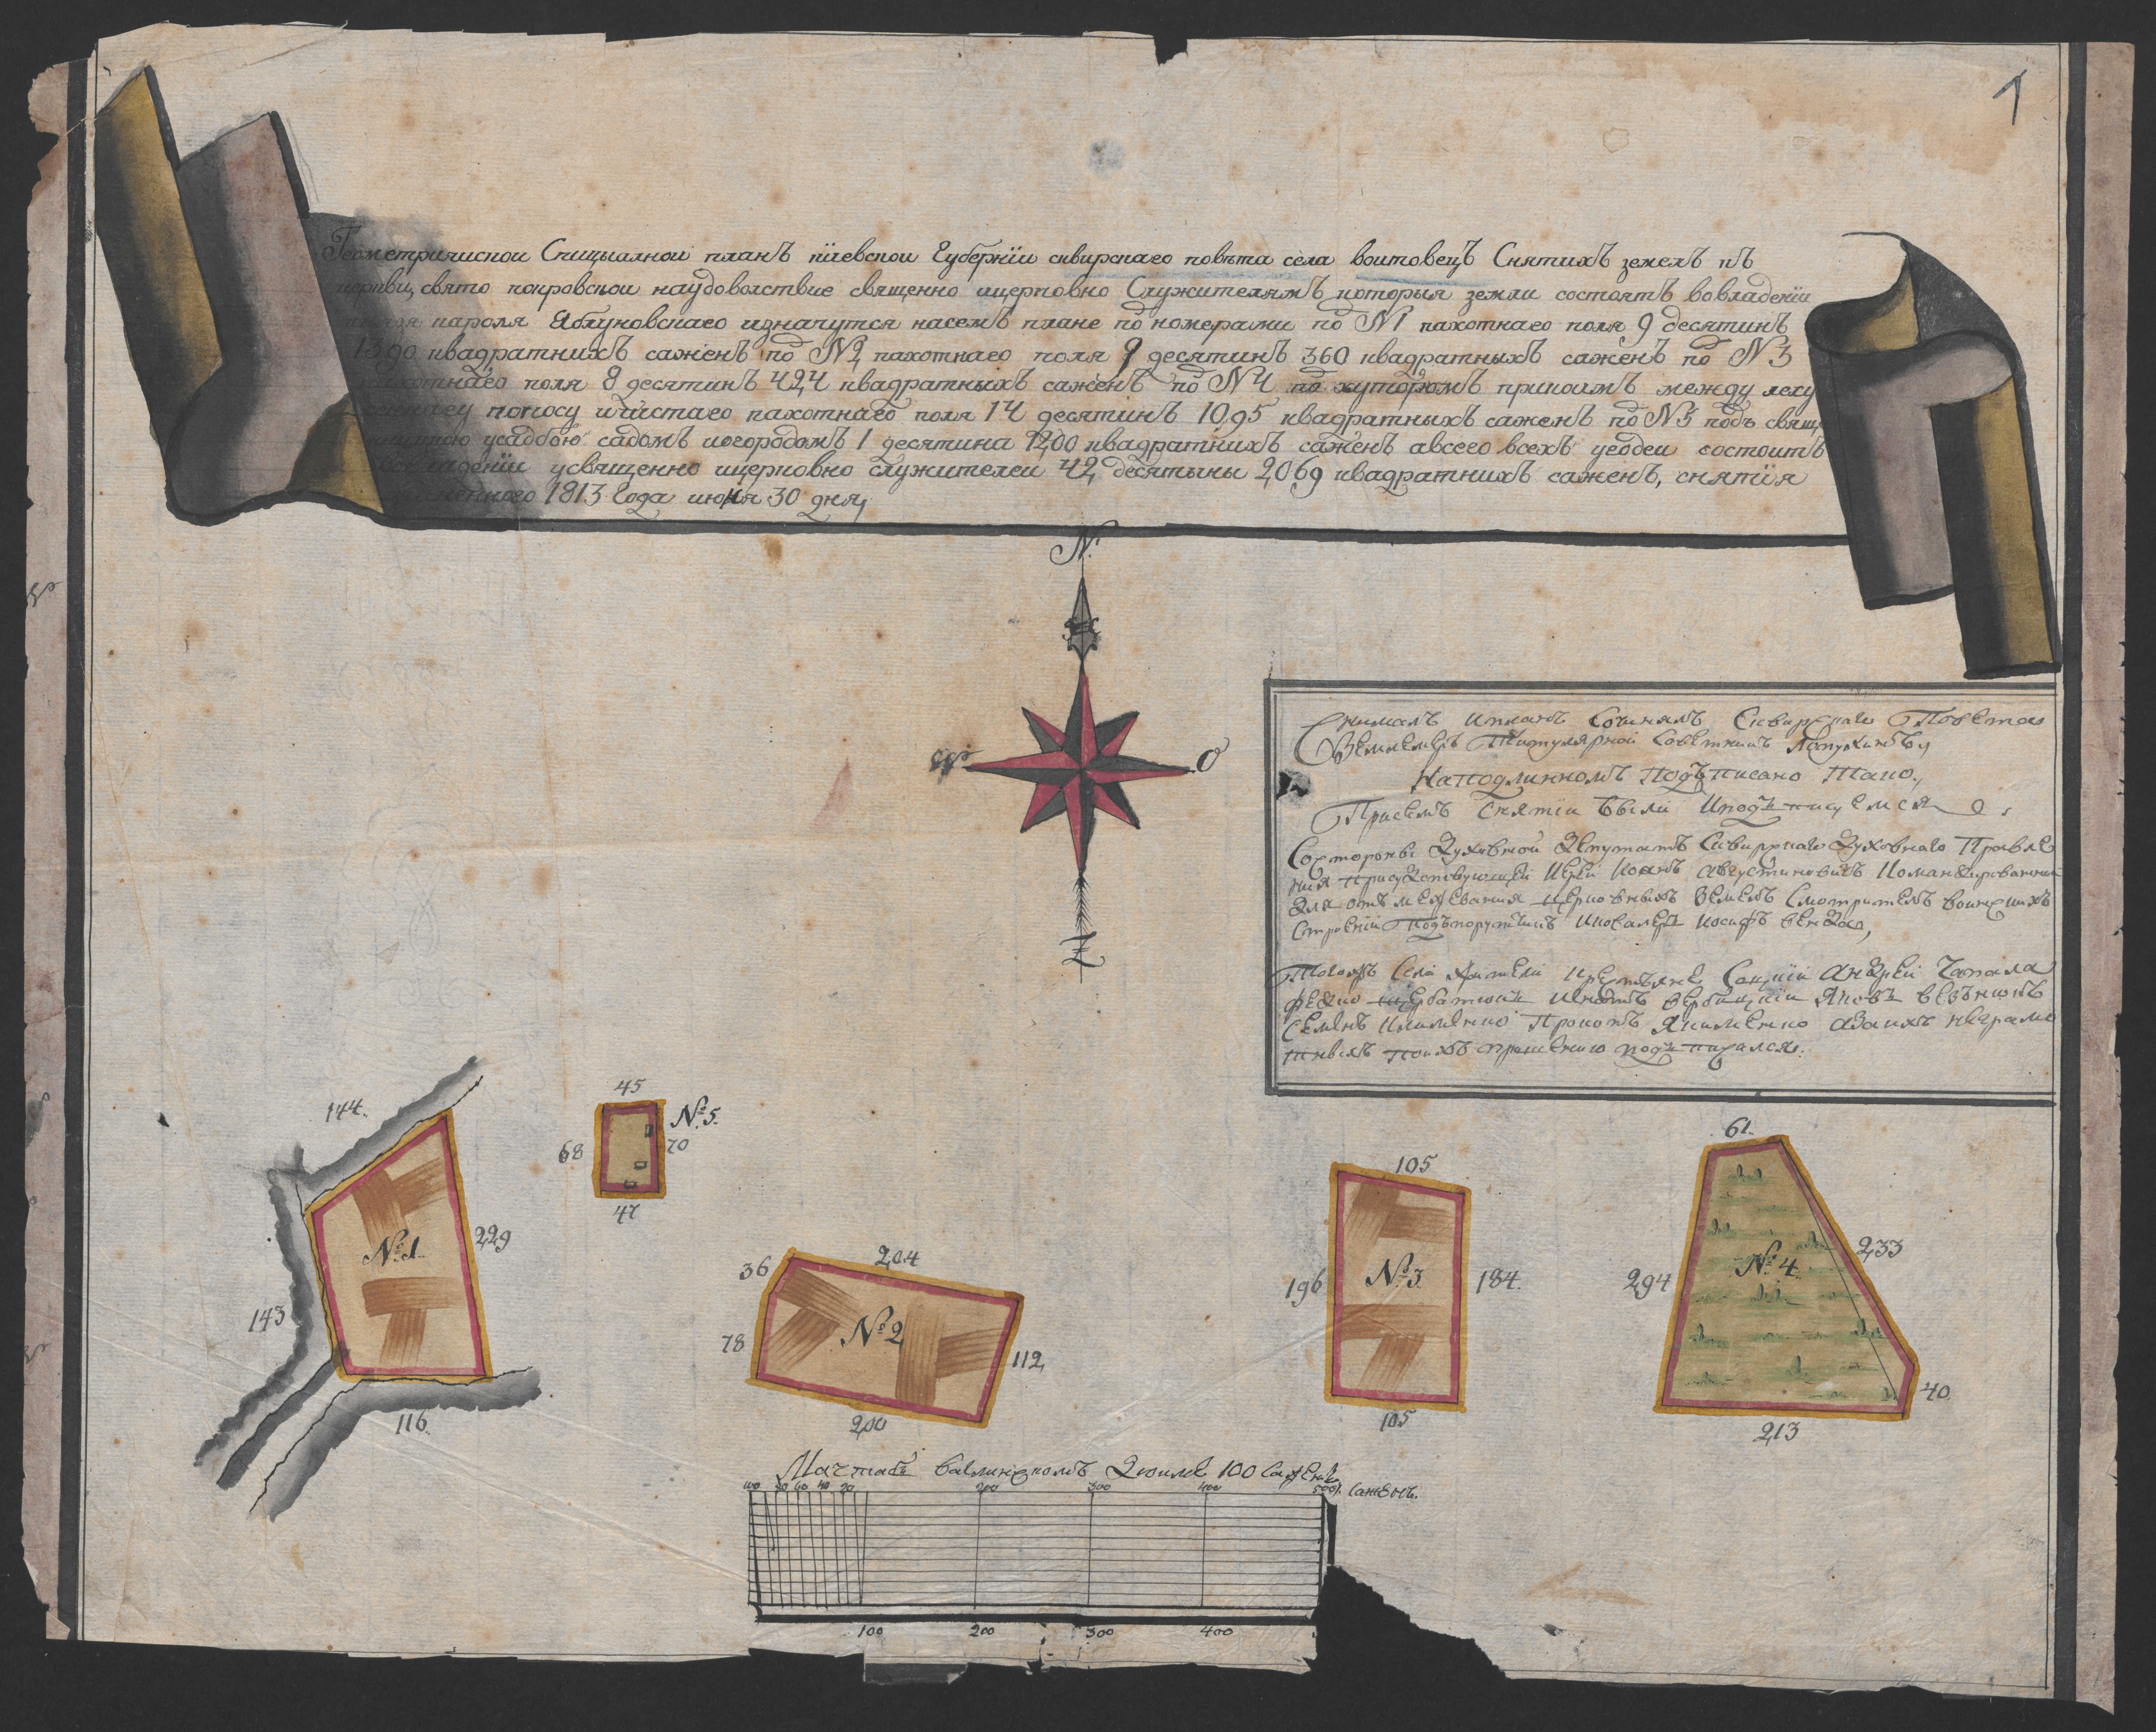 1
Геометрическои Спецыалнои планъ кіевскои Губерніи сквирскаго повѣта села воитовецъ Снятихъ земелъ къ
церкви, свято покровскои наудоволствие священно ицерковно Служителямъ которыя земли состоятъ вовладеніи
кароля Яблуновскаго изначутся насемъ плане по номерами по №1 пахотнаго поля 9 десятинъ
1390 квадратнихъ саженъ по №2 пахотнаго поля 9 десятинъ 360 квадратныхъ саженъ по №3
пахотнаго поля 8 десятинъ 424 квадратныхъ саженъ по №4 по хуторомъ между
покосу ичистаго пахотнаго поля 14 десятинъ 1095 квадратныхъ саженъ по №5 подъ свящ
усадбою садомъ иогородомъ 1 десятина 1200 квадратнихъ саженъ авсего всехъ угодеи состоитъ
усвященно ицерковно служителеи 42 десятыны 2069 квадратнихъ саженъ, снятія
1813 Года июня 30 дня,
N.
W
O
Z
Снималъ ипланъ Сочинялъ Сквирскаго Повета
Землемеръ Титулярной Советникъ Лопухинъ,
Наподлинномъ Подъписано Тако,
Присемъ Снятіи Были Иподъписуемся
Состороны Духовной Депутатъ Сквирскаго Духовнаго Правле
ния Присудствующій Иерей Иоанъ Августиновичъ Командированни
Для отъмежевания церковныхъ Земель Смотрителъ воинскихъ
Строеніи Подъпоручикъ Икавалеръ Иосифъ
Тогожъ Села жители крестьяне Соцкіи Андрей Чапала
Федко Щербатюкъ Игнатъ Вербицкіи Яковъ
Семенъ Клименко Прокопъ Якименко Азаихъ неграмо
тныхъ поихъ прошению подъписался.
144.
143
№ 1.
229
116.
45
№ 5.
68
70
47
36
204
78
№ 2
112
200
105
196
№ 3.
184.
105
61.
294
№ 4.
233
40
213
Мачтабъ ваглинскомъ Дюиме 100 Саженъ
100 80 60 40 20 200 300 400 500 Саженъ.
100 200 300 400